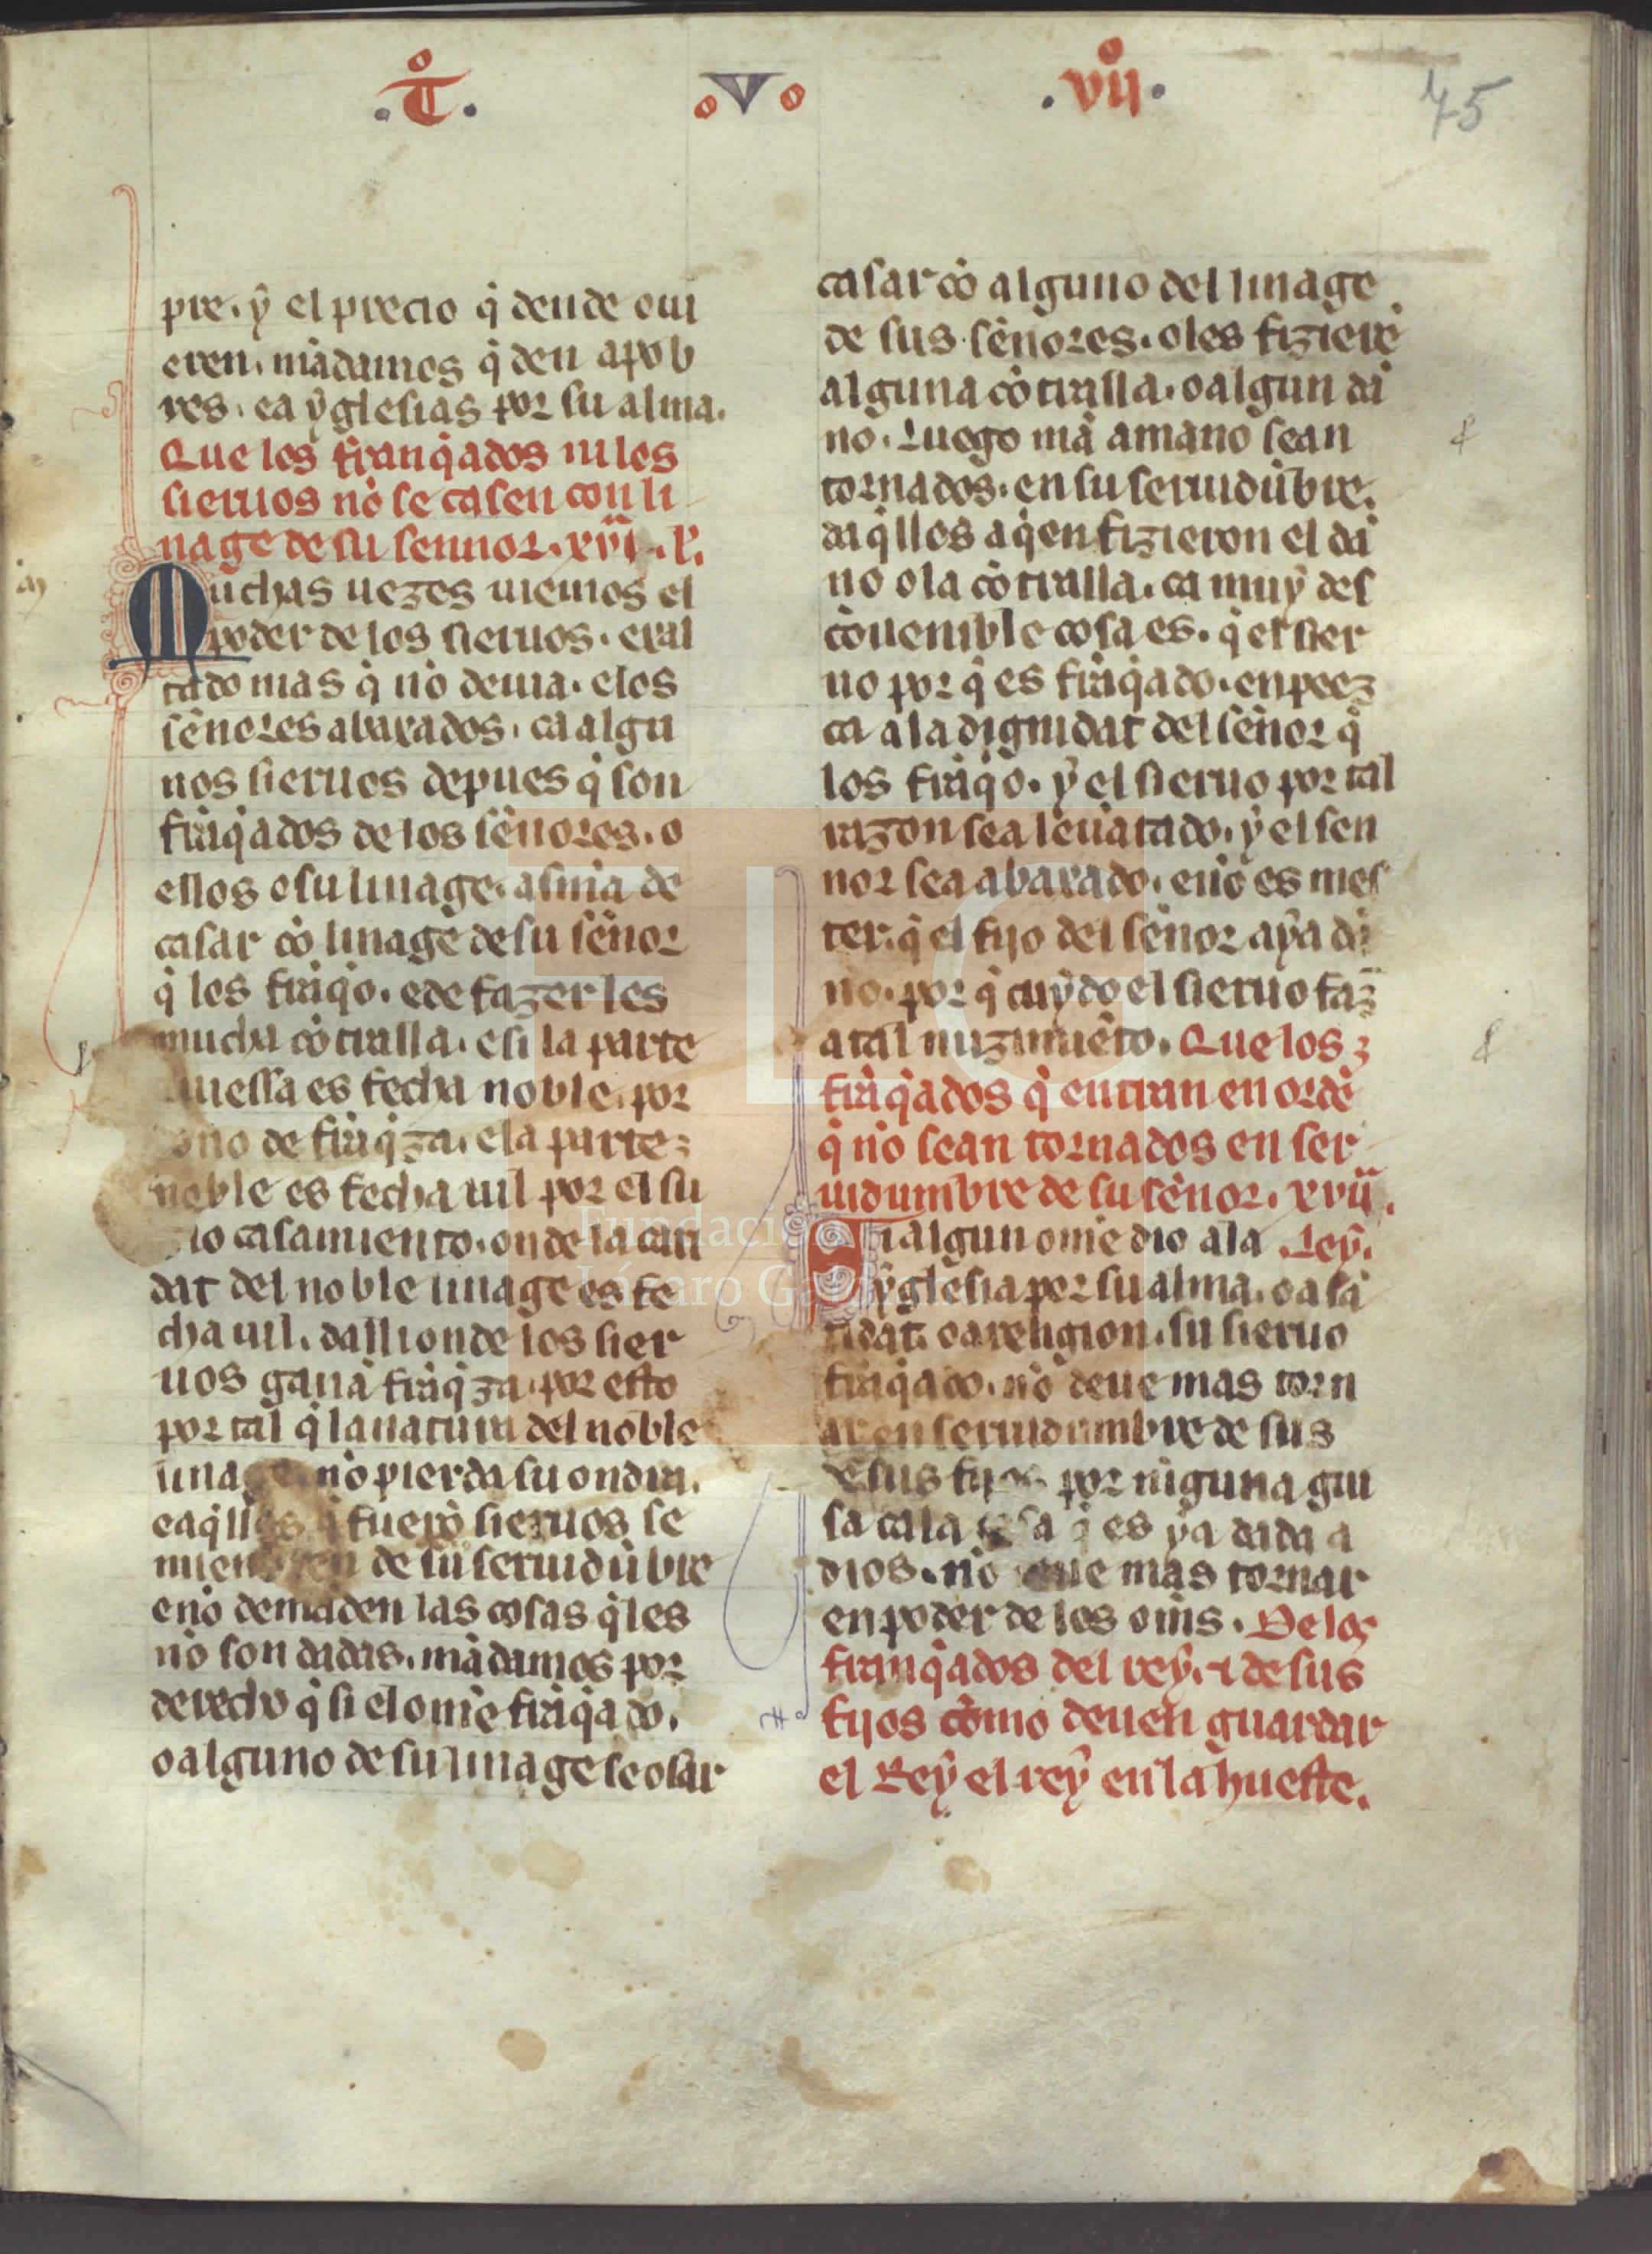 .T̊. oVo .vıȷ̊.
75
pre. ẏ el precio q̇ dende oui
eren. mādamos q̇ den apob
res. ea ẏglesias por su alma.
Que los franq̇ados ni los
sieruos nō se casen con li
nage de su sennor. xvi. l.
Muchas uezes uiemos el
poder de los sieruos. exal
tado mas q̇ nō deuia. elos
sēnores abaxados. ca algu
nos sieruos depues q̇ son
frāq̇ados de los sēnores. o
ellos o su linage. asma de
casar cō linage de su sēnor
q̇ los frāq̇o. e de fazer les
mucha cōtralla. e si la parte
uessa es fecha noble. por
ono de frāq̇za. e la parte
noble es fecha uil por el su
zio casamiento. onde la clari
dat del noble linage es fe
cha uil. dalli onde los sier
uos ganā frāq̇za. por esto
por tal q̇ la natura del noble
linage nō pierda su ondra.
e aq̇llos q̇ fuerō sieruos se
miembren de su seruidūbre
e nō demāden las cosas q̇ les
nō son dadas. mādamos por
derecho q̇ si el omē frāq̇ado.
o alguno de su linage se osar
casar cō alguno del linage
de sus sēnores. o les fizierē
alguna cōtralla. o algun dā
no. Luego mā amano sean
tornados. en su seruidūbre.
daq̇llos aq̇en fizieron el dā
no o la cōtralla. ca muẏ des
cōuenible cosa es. q̇ el sier
uo por q̇ es frāq̇ado. enpeez
ca a la dignidat del sēnor q̇
los frāq̇o. ẏ el sieruo por tal
razon sea leuātado. ẏ el sen
nor sea abaxado. e nō es mes
ter. q̇ el fijo del sēnor aẏa dā
no. por q̇ cuẏdo el sieruo faz
a tal nuzimiēto. Que los
frāq̇ados q̇ entran en ordē
q̇ nō sean tornados en ser
uidumbre de su sēnor. xvii.
Si algun omē dio a la Leẏ.
ẏglesia por su alma. o a sā
tidat. o a religion. su sieruo
frāq̇ado. nō deue mas torn
ar en seruidumbre de sus
de sus fijos por nīguna gui
sa ca la cosa q̇ es ẏa dada a
dios. nō deue mas tornar
en poder de los omīs. De los
franq̇ados del reẏ. ⁊ de sus
fijos cōmo deuen guardar
el Reẏ el reẏ en la hueste.
FLG
Fundación
Lázaro Galdiano